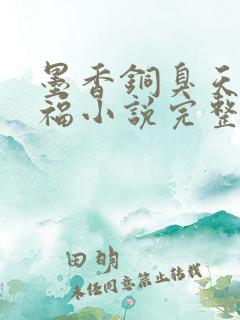 墨香銅臭天
福小說完整
田明
未任同意禁止转载